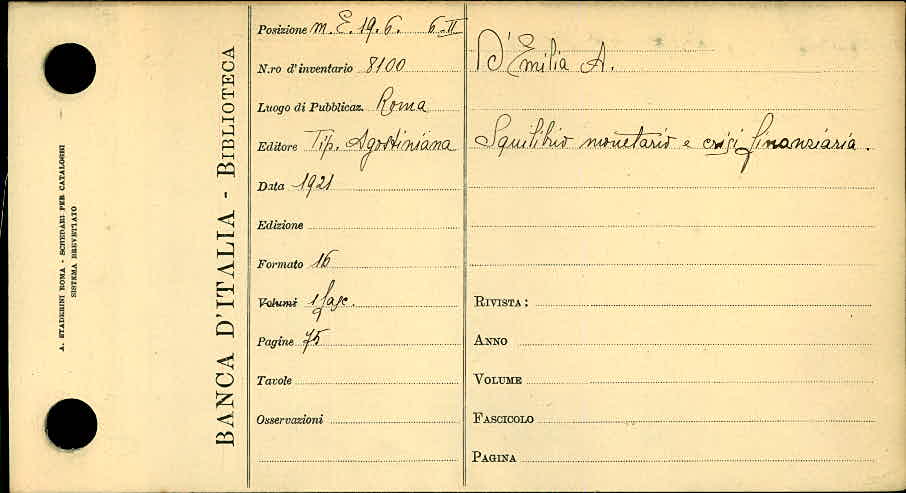 A. STADERINI ROMA - SCHEDARI PER CATALOGHI
SISTEMA BREVETTATO
BANCA D'ITALIA - BIBLIOTECA
Posizione m. E. 19. 6. 6-II
N.ro d'inventario 8100
Luogo di Pubblicaz. Roma
Editore Tip. Agostiniana
Data 1921
Edizione
Formato 16
Volumi 1 fasc.
Pagine 75
Tavole
Osservazioni
D'Emilia A.
Squilibrio monetario e crisi finanziaria.
RIVISTA:
ANNO
VOLUME
FASCICOLO
PAGINA